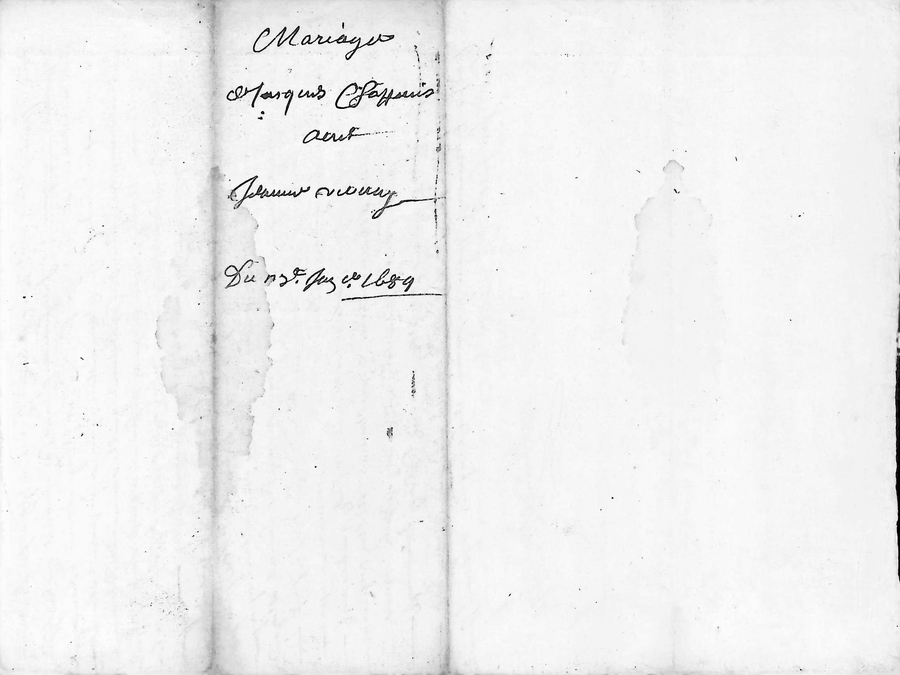 Mariage
Jacques Chappuis
avec
Jeanne
Du 13e. 1689